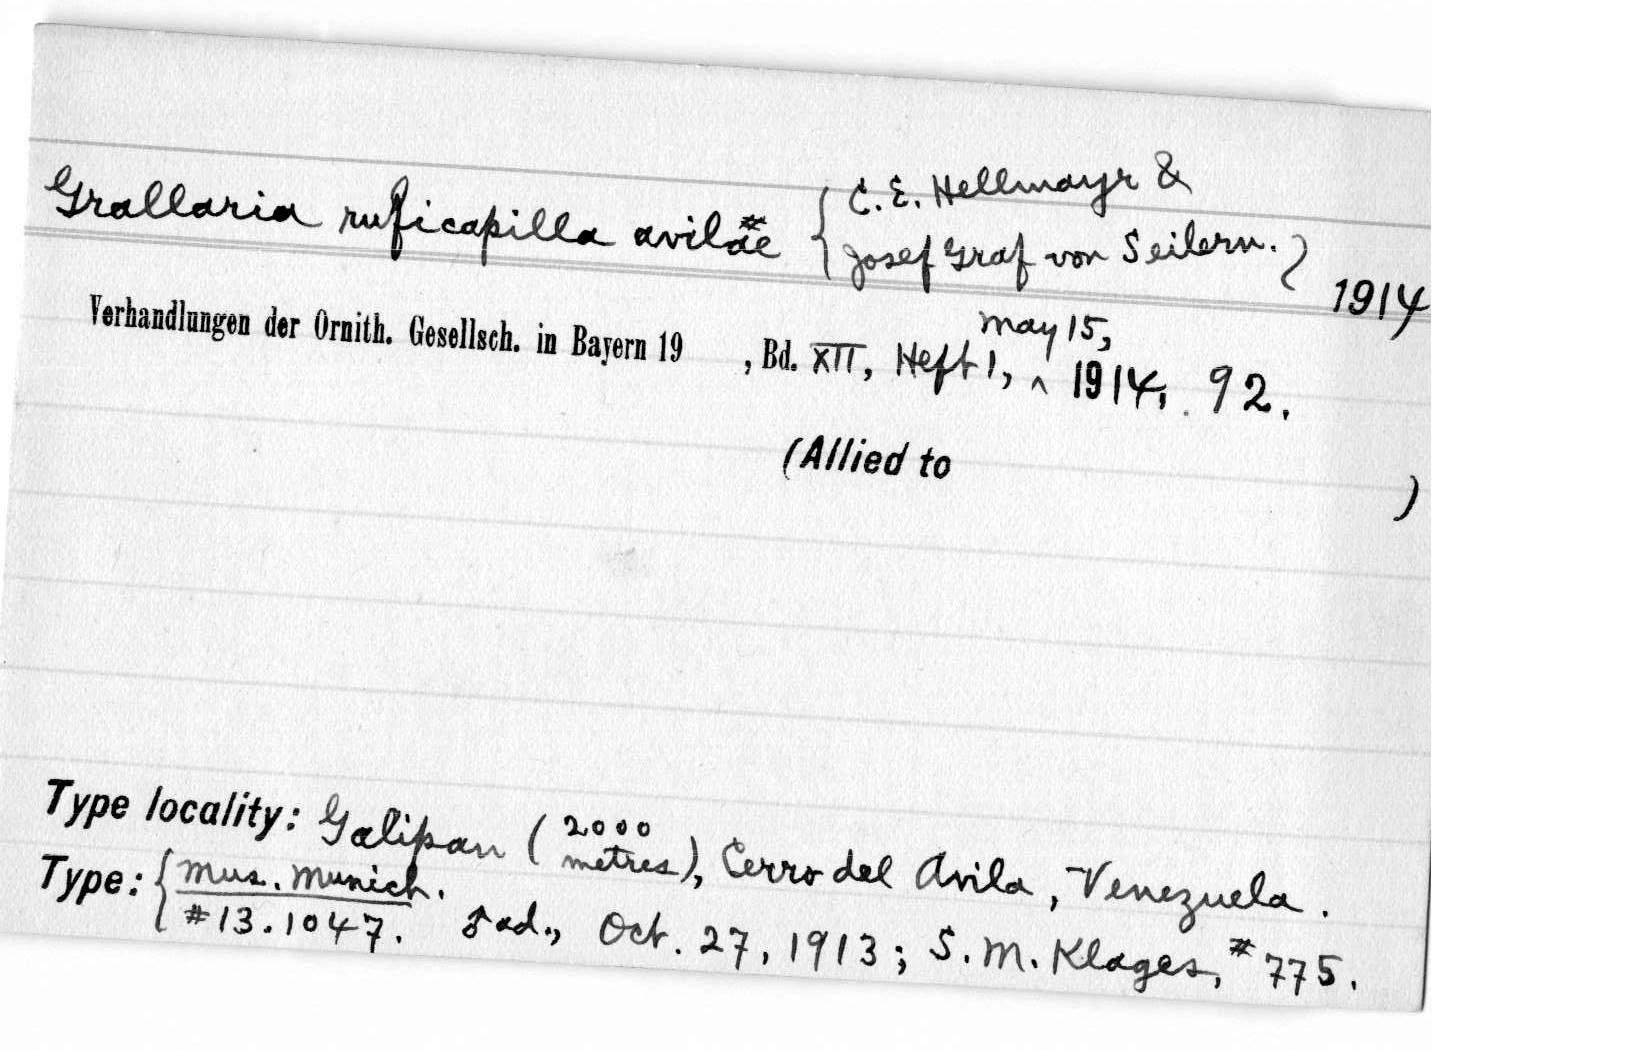 Grallaria ruficapilla avilæ# {C. E. Hellmayr &
Josef Graf von Seilern.} 1914
Verhandlungen der Ornith. Gesellsch. in Bayern 19 , Bd. XII, Heft 1, ^ May 15, 1914, 92.
(Allied to )
Type locality: Galipan (2000 metres), Cerro del Avila, Venezuela.
Type: {Mus. Munich.
#13.1047. ♂ ad., Oct. 27, 1913; S. M. Klages, #775.